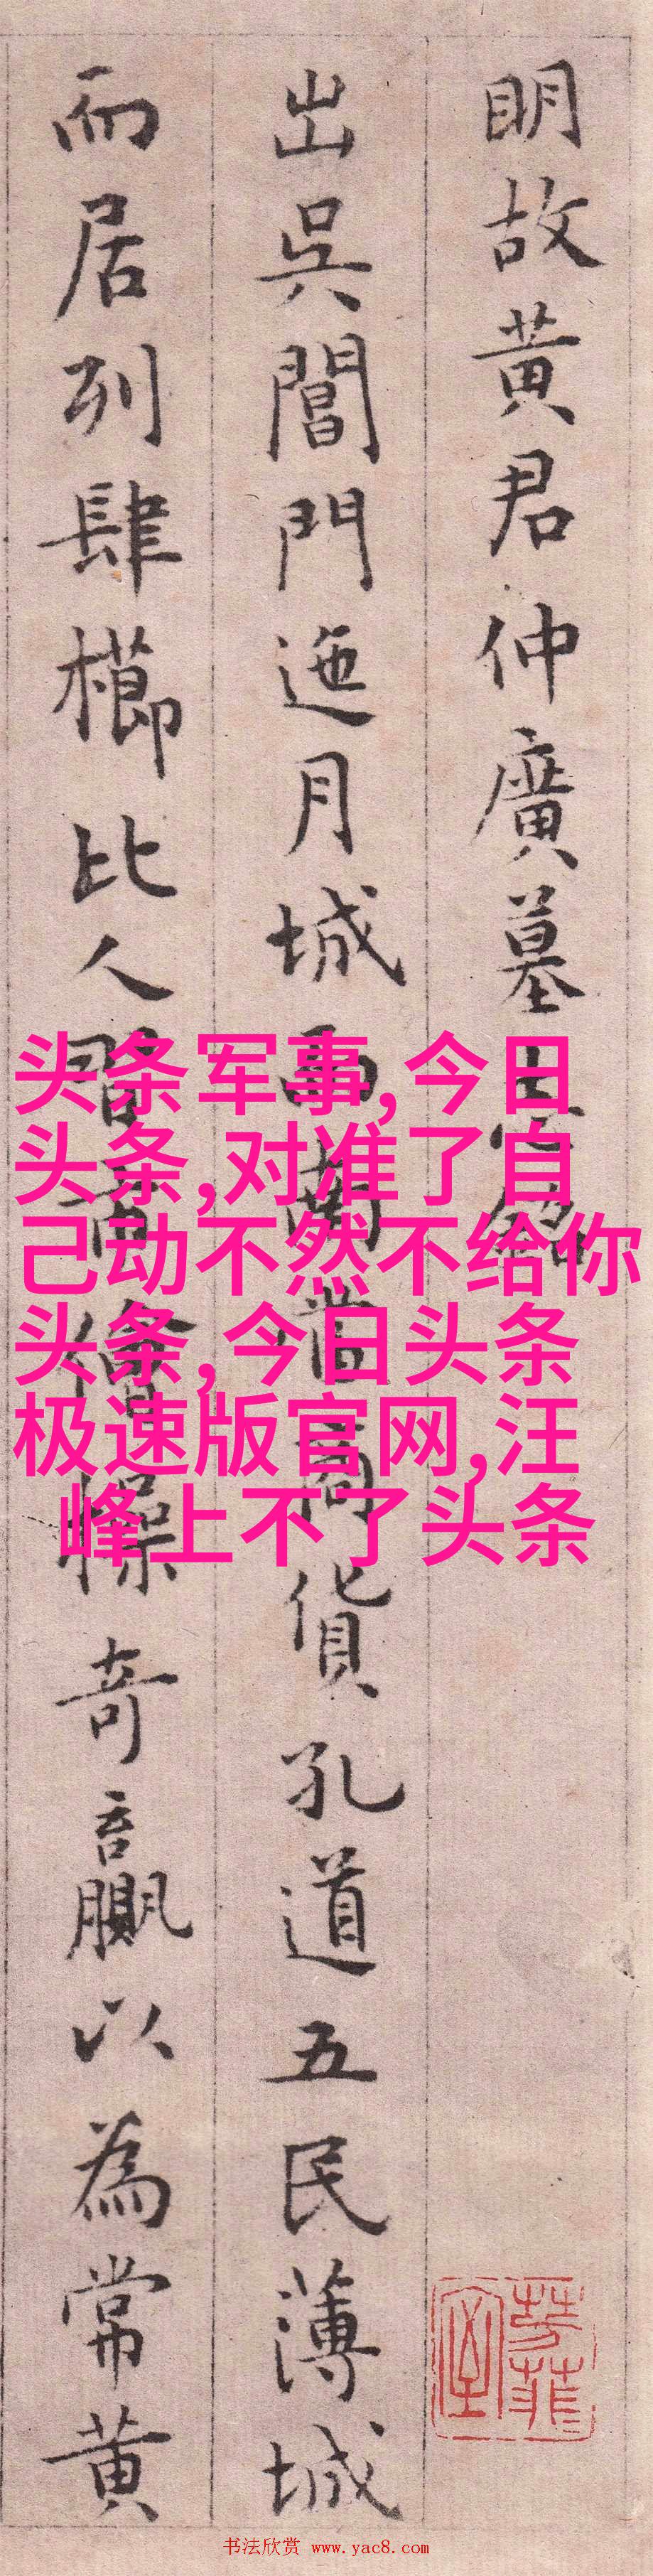 明故黄君仲廣墓志銘
出吳閶門迤月城而蘭皆商貨孔道五民薄城
而居列肆櫛比人習商僧操奇贏以為常黄
头条军事,今日
头条,对准了自
己动不然不给你
头条,今日头条
极速版官网,汪
峰上不了头条
书法欣赏 www.yac8.com